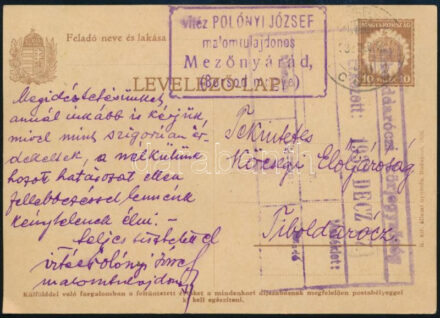 Feladó neve és lakása
vitéz POLÓNYI JÓZSEF
malomtulajdonos
Mezőnyárád,
(Borsod m egye)
MAGYARORSZÁG
10
LEVELEZŐLAP
Megidéztetésünket
annál inkább is kérjük,
mivel mint szigorúan ér-
dekeltek, a nélkülünk
hozott határozat ellen
fellebbezéssel lennénk
kénytelenek élni. —
Teljes tisztelettel
vitéz Polónyi József
malomtulajdonos
Tekintetes
Községi Elöljáróság
Tiboldarócz.
193 DEZ
Külfölddel való forgalomban a feltüntetett értéket a mindenkori díjszabásnak megfelelően postabélyeggel
ki kell egészíteni.